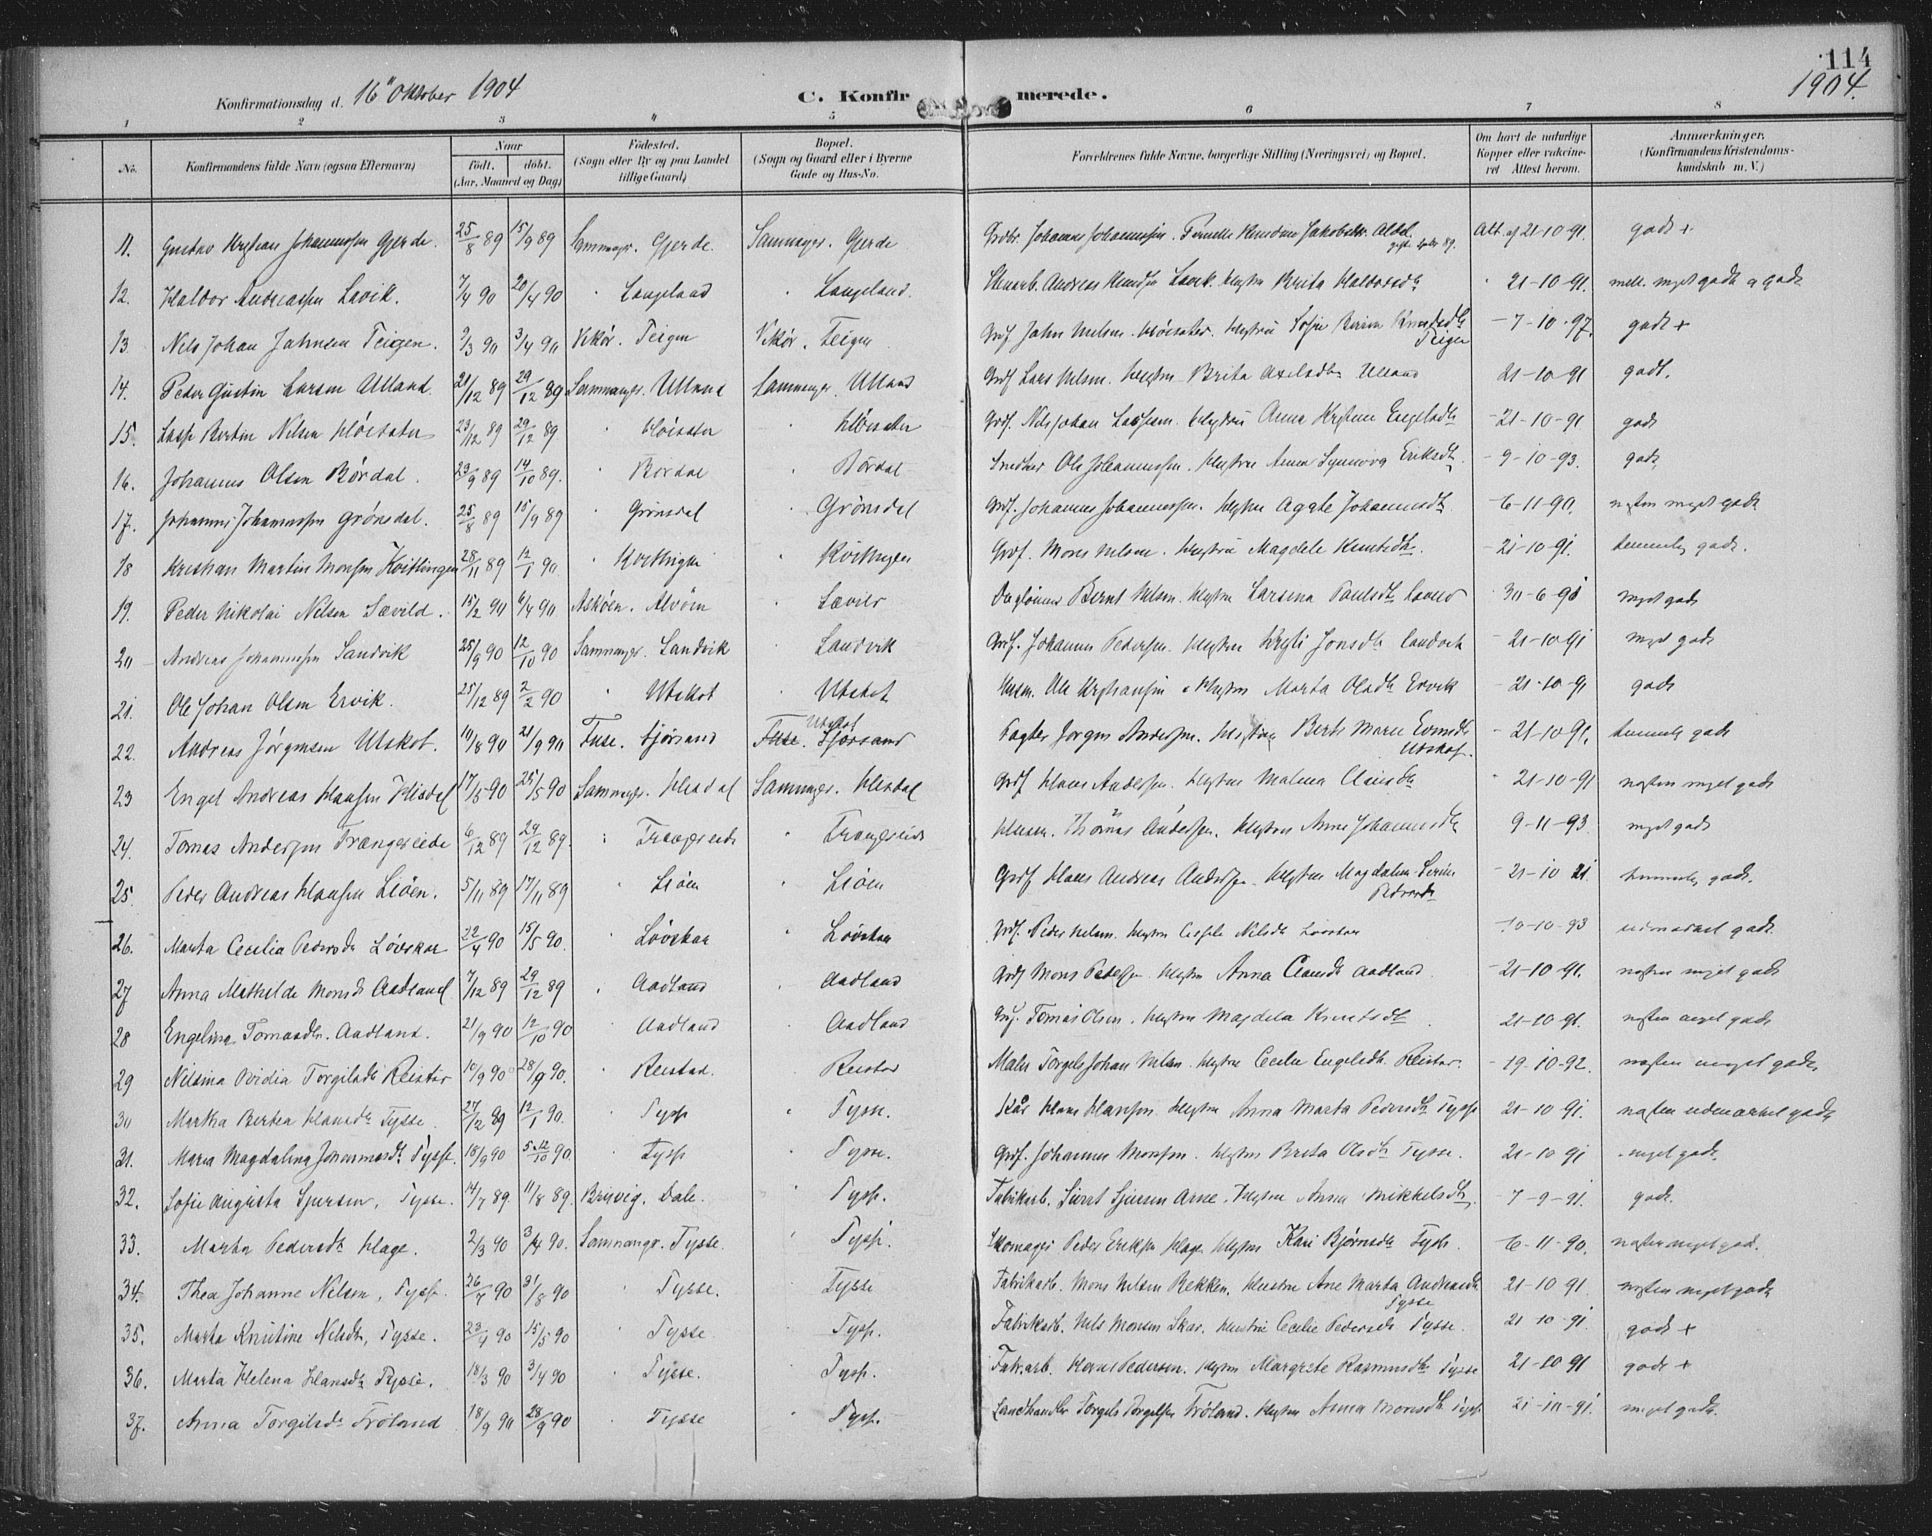 114
1904.
Konfirmationsdag d. 16" Oktober 1904
C. Konfirmerede.
1 2 3 4 5 6 7 8
No. Konfirmandens fulde Navn (ogsaa Efternavn) Naar født. døbt. (Aar, Maaned og Dag) Fødested. (Sogn eller By og paa Landet tillige Gaard) Bopæl. (Sogn og Gaard eller i Byerne Gade og Hus-No. Forældrenes fulde Navne, borgerlige Stilling (Næringsvei) og Bopæl. Om havt de naturlige Kopper eller vakcineret Attest herom. Anmærkninger. (Konfirmandens Kristendomskundskab m. V.)
11. Gustav Kristian Johannessen Gjerde. 25/8 89 15/9 89 Samnanger. Gjerde Samnanger. Gjerde Johannes Johannessen. Att. af 21-10-91. godt +
12. Haldor Andreassen Lavik. 7/4 90 20/4 90 " Langeland " Langeland. Andreas Knudsen Lavik. Hustru Brita Haldorsdtr " 21-10-91. meget godt og godt
13. Nils Johan Jahnsen Teigen. 2/3 90 3/4 90 Vikør. Teigen Vikør. Teigen Jahn Nilsen Høisæter. Hustru Sofie Knudsdtr Teigen - 7-10-97. godt +
14. Peder Gustin Larsen Ulland. 21/12 89 29/12 89 Samnanger. Ulland Samnanger. Ulland Lars Nilsen. Hustru Brita Axelsdtr Ulland 21-10-91 godt.
15. Lasse Bertin Nilsen Høisæter 23/12 89 29/12 89 " Høisæter " Høisæter Nils Johan Lassesen. Hustru Anna Kristine Engelsdtr - 21-10-91 godt
16. Johannes Olsen Børdal. 29/9 89 14/10 89. " Børdal " Børdal Ole Johannessen. Hustru Anna Synnøva Eriksdtr - 9-10-93. godt
17. Johannes Johannessen Grønsdal. 25/8 89 15/9 89 " Grønsdal " Grønsdal Johannes Johannessen. Hustru Agate Johannesdtr - 6-11-90. næsten meget godt
18 Kristian Martin Monsen Kvitlingen 28/11 89 12/1 90 " Kvitlingen " Kvitlingen Mons Nilsen. Hustru Magdele Knutsdtr - 21-10-91. temmelig godt.
19. Peder Nikolai Nilsen Sævild. 15/2 90 6/4 90 Askøen. Alvøen " Sævild Bernt Nilsen. Hustru Larsina Paulsdtr Sævild - 30-6-90 meget godt
20 Andreas Johannessen Sandvik 25/9 90 12/10 90 Samnanger. Sandvik " Sandvik Johannes Pedersen. Hustru Jonsdtr Sandvik - 21-10-91 meget godt
21. Ole Johan Olsen Ervik. 25/12 89 2/2 90 " Utskot " Utskot Ole Kristiansen. Hustru Marta Olsdtr Ervik - 21-10-91 godt
22. Andreas Jørgensen Utskot. 10/8 90 21/9 90 Fuse. Sjørsand Fuse. Sjørsand Utskot Jørgen Andersen. Hustru Berte Marie Utskot. - 21-10-91. temmelig godt
23 Engel Andreas Hansen Hisdal 17/5 90 25/5 90 Samnanger. Hisdal Samnanger. Hisdal Hans Andersen. Hustru Malena Clausdtr " 21-10-91 næsten meget godt
24. Tomas Andersen Trængereide 6/12 89 29/12 89. " Trængereide " Trængereide Thomas Andersen. Hustru Anna Johannesdtr 9-11-93 meget godt
25 Peder Andreas Hansen Liøen. 5/11 89 17/11 89 " Liøen " Liøen Hans Andreas Andersen. Hustru Magdalena Pedersdtr - 21-10 91. temmelig godt.
26. Marta Cecilia Pedersdtr Løvskar 22/4 90 15/5 90. " Løvskar " Løvskar Peder Nilsen. Hustru Nilsdtr Løvskar 10-10-93 udmærket godt.
27 Anna Mathilde Monsdtr Aadland 7/12 89 29/12 89 " Aadland " Aadland Mons Pedersen. Hustru Anna Clausdtr Aadland - 21-10-91. næsten meget godt
28 Engelina Tomasdtr. Aadland. 21/9 90 12/10 90 " Aadland " Aadland Tomas Olsen. Hustru Magdela Knutsdtr 21-10-91. næsten meget godt
29 Nilsina Ovidia Torgilsdtr Reistad 10/9 90 28/9 90. " Reistad. " Reistad Maler Torgils Johan Nilsen. Hustru Cecilie Engelsdtr Reistad. - 19-10-92. næsten meget godt
30 Martha Bertea Hansdtr Tysse. 27/12 89 12/1 90. " Tysse " Tysse. Hans Hansen. Hustru Anna Marta Pedersdtr Tysse 21-10 91. næsten udmærket godt
31. Maria Magdalina Johannesdtr Tysse. 18/9 90 12/10 90. " Tysse " Tysse. Johannes Monsen. Hustru Brita Olsdtr Tysse. - 21-10 91 meget godt.
32. Sofie Augusta Sjursen, Tysse. 14/7 89 11/8 89. Bruvig. Dale. " Tysse. Fabrikarb. Sjursen Arne. Hustru Anna Mikkelsdtr - 7-9-91. godt.
33. Marta Pedersdtr Hage. 2/3 90 3/4 90. Samnanger. Tysse. " Tysse. Skomager Peder Eriksen Hage Hustru Kari Bjørnsdtr Tysse. - 6-11-90. næsten meget godt.
34. Thea Johanne Nilsen, Tysse. 26/7 90 31/8 90 " Tysse. Tysse Fabrikarb. Mons Nilsen Bekken. Hustru Ane Marta Andreasdtr Tysse 21-10 91. næsten meget godt
35. Marta Kristine Nilsdtr, Tysse. 23/4 90 15/5 90 " Tysse " Tysse. Fabrikarb. Nils Monsen Skar. Hustru Cecilie Pedersdtr Tysse. 21-10-91. godt +
36. Marta Helena Hansdtr Tysse. 18/3 90 3/4 90 " Tysse. Tysse. Fabrikarb. Hans Pedersen. Hustru Margrete Rasmusdtr Tysse 21-10 91 godt +
37. Anna Torgilsdtr Frøland 18/9 90 28/9 90 " Tysse " Tysse. Landhandler Torgils Torgilsen Frøland. Hustru Anna Monsdtr Tysse 21-10-91. meget godt.